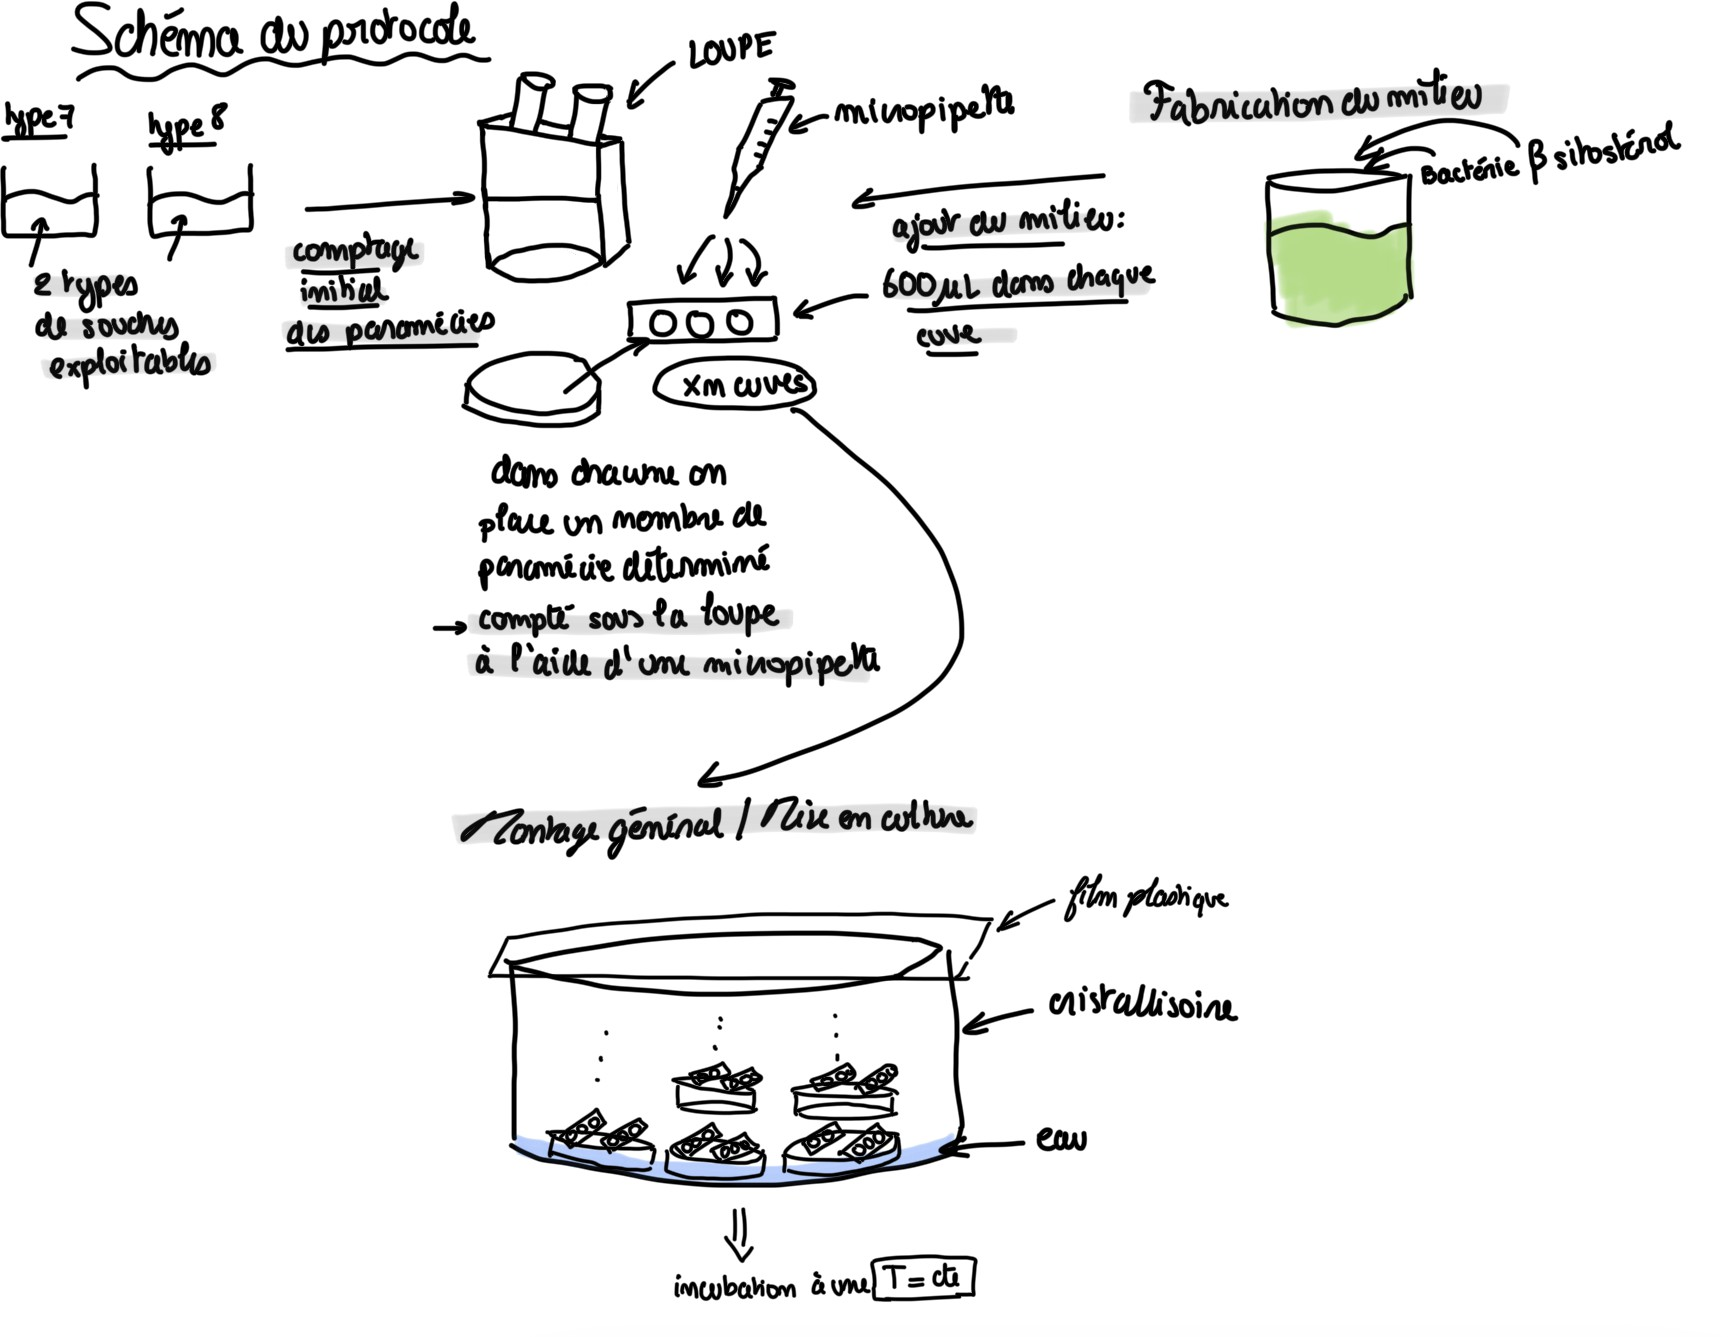 Schéma du protocole
type 7
type 8
2 types
de souches
exploitables
comptage
initial
des paramécies
LOUPE
micropipette
ajout du milieu:
600 µL dans chaque
cuve
Fabrication du milieu
Bactérie β sitostérol
xn cuves
dans chacune on
place un nombre de
paramécie déterminé
→ compté sous la loupe
à l'aide d'une micropipette
Montage général / Mise en culture
film plastique
cristallisoire
eau
incubation à une T = cte